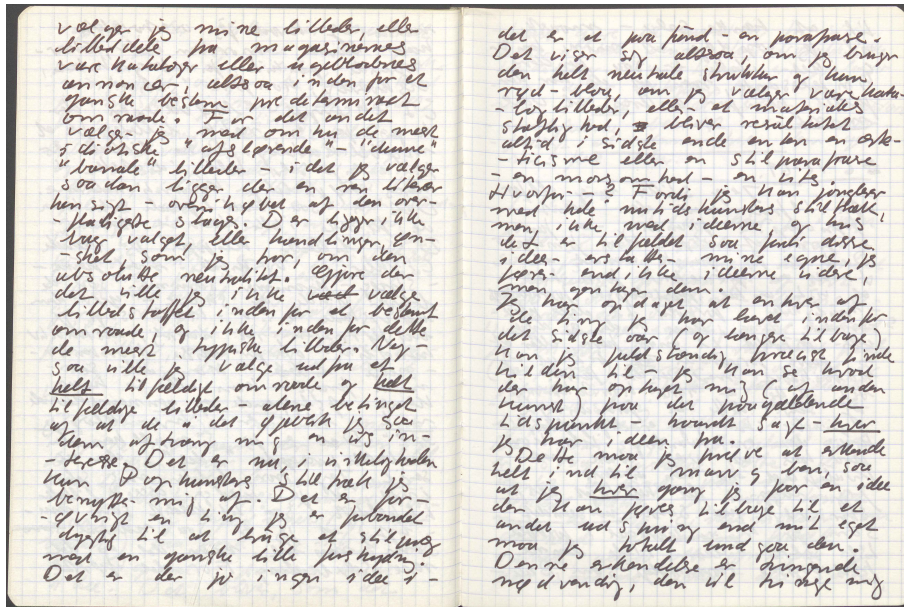 vælger jeg mine billeder, eller
billeddele fra magasinernes
varekataloger eller ugebladenes
annoncer, altsaa inden for et
ganske bestemt præ determineret
omraade. For det andet
vælger jeg med om hu de mest
idiotiske "afslørende" - "dumme"
"banale" billeder - idet jeg vælger
saadan ligger der en ren litterær
hensigt - ovenikøbet af den over-
fladigste slags. Der ligger ikke
bag valget, eller handlingen, øn-
sket, som jeg har, om den
absolutte neutralitet. Gjorde der
det ville jeg ikke vælge
billedstoffet inden for et bestemt
omraade, og ikke inden for dette
de mest typiske billeder. Nej -
saa ville jeg vælge ud fra et
helt tilfældige omraade og helt
tilfældige billeder - alene betinget
af at de i det øjeblik jeg saa
dem aftvang mig en vis in-
teresse. Det er nu, i virkeligheden
kun Popkunstens stiltræk jeg
benytter mig af. Det er for-
øvrigt en ting jeg er forbandet
dygtig til at bruge et stilpræg
med en ganske lille forskydning.
Det er der jo ingen idee i -
det er et paafund - en parafrase.
Det viser sig altsaa, om jeg bruger
den helt neutrale struktur og kun
ryd- blog, om jeg vælger vare kata-
logbilleder, eller et materiales
stoflighed, bliver resultatet
altid i sidste ende enten en æste-
ticisme eller en stilparafrase
- en morsomhed - en vits.
Hvorfor - ? Fordi jeg kan jonglere
med hele nutidskunstens stiltræk,
men ikke med ideerne, og hvis
det er tilfældet saa fordi disse
ideer erstatter mine egne, jeg
fører end ikke ideerne videre,
men gentager dem.
Jeg har opdaget at enhver af
de ting jeg har lavet indenfor
det sidste aar (og længere tilbage)
kan jeg fuldstændig præcist finde
kilden til - jeg kan se hvad
der har optaget mig (af anden
kunst) paa det paagældende
tidspunkt - hvoridt sagt - hver
jeg har ideen fra.
Dette maa jeg prøve at erkende
helt ind til marv og ben, saa
at jeg hver gang jeg faar en idee
der kan føres tilbage til et
andet udspring end mit eget
maa jeg totalt undgaa den.
Denne erkendelse er tvingende
nødvendig, den vil bringe mig